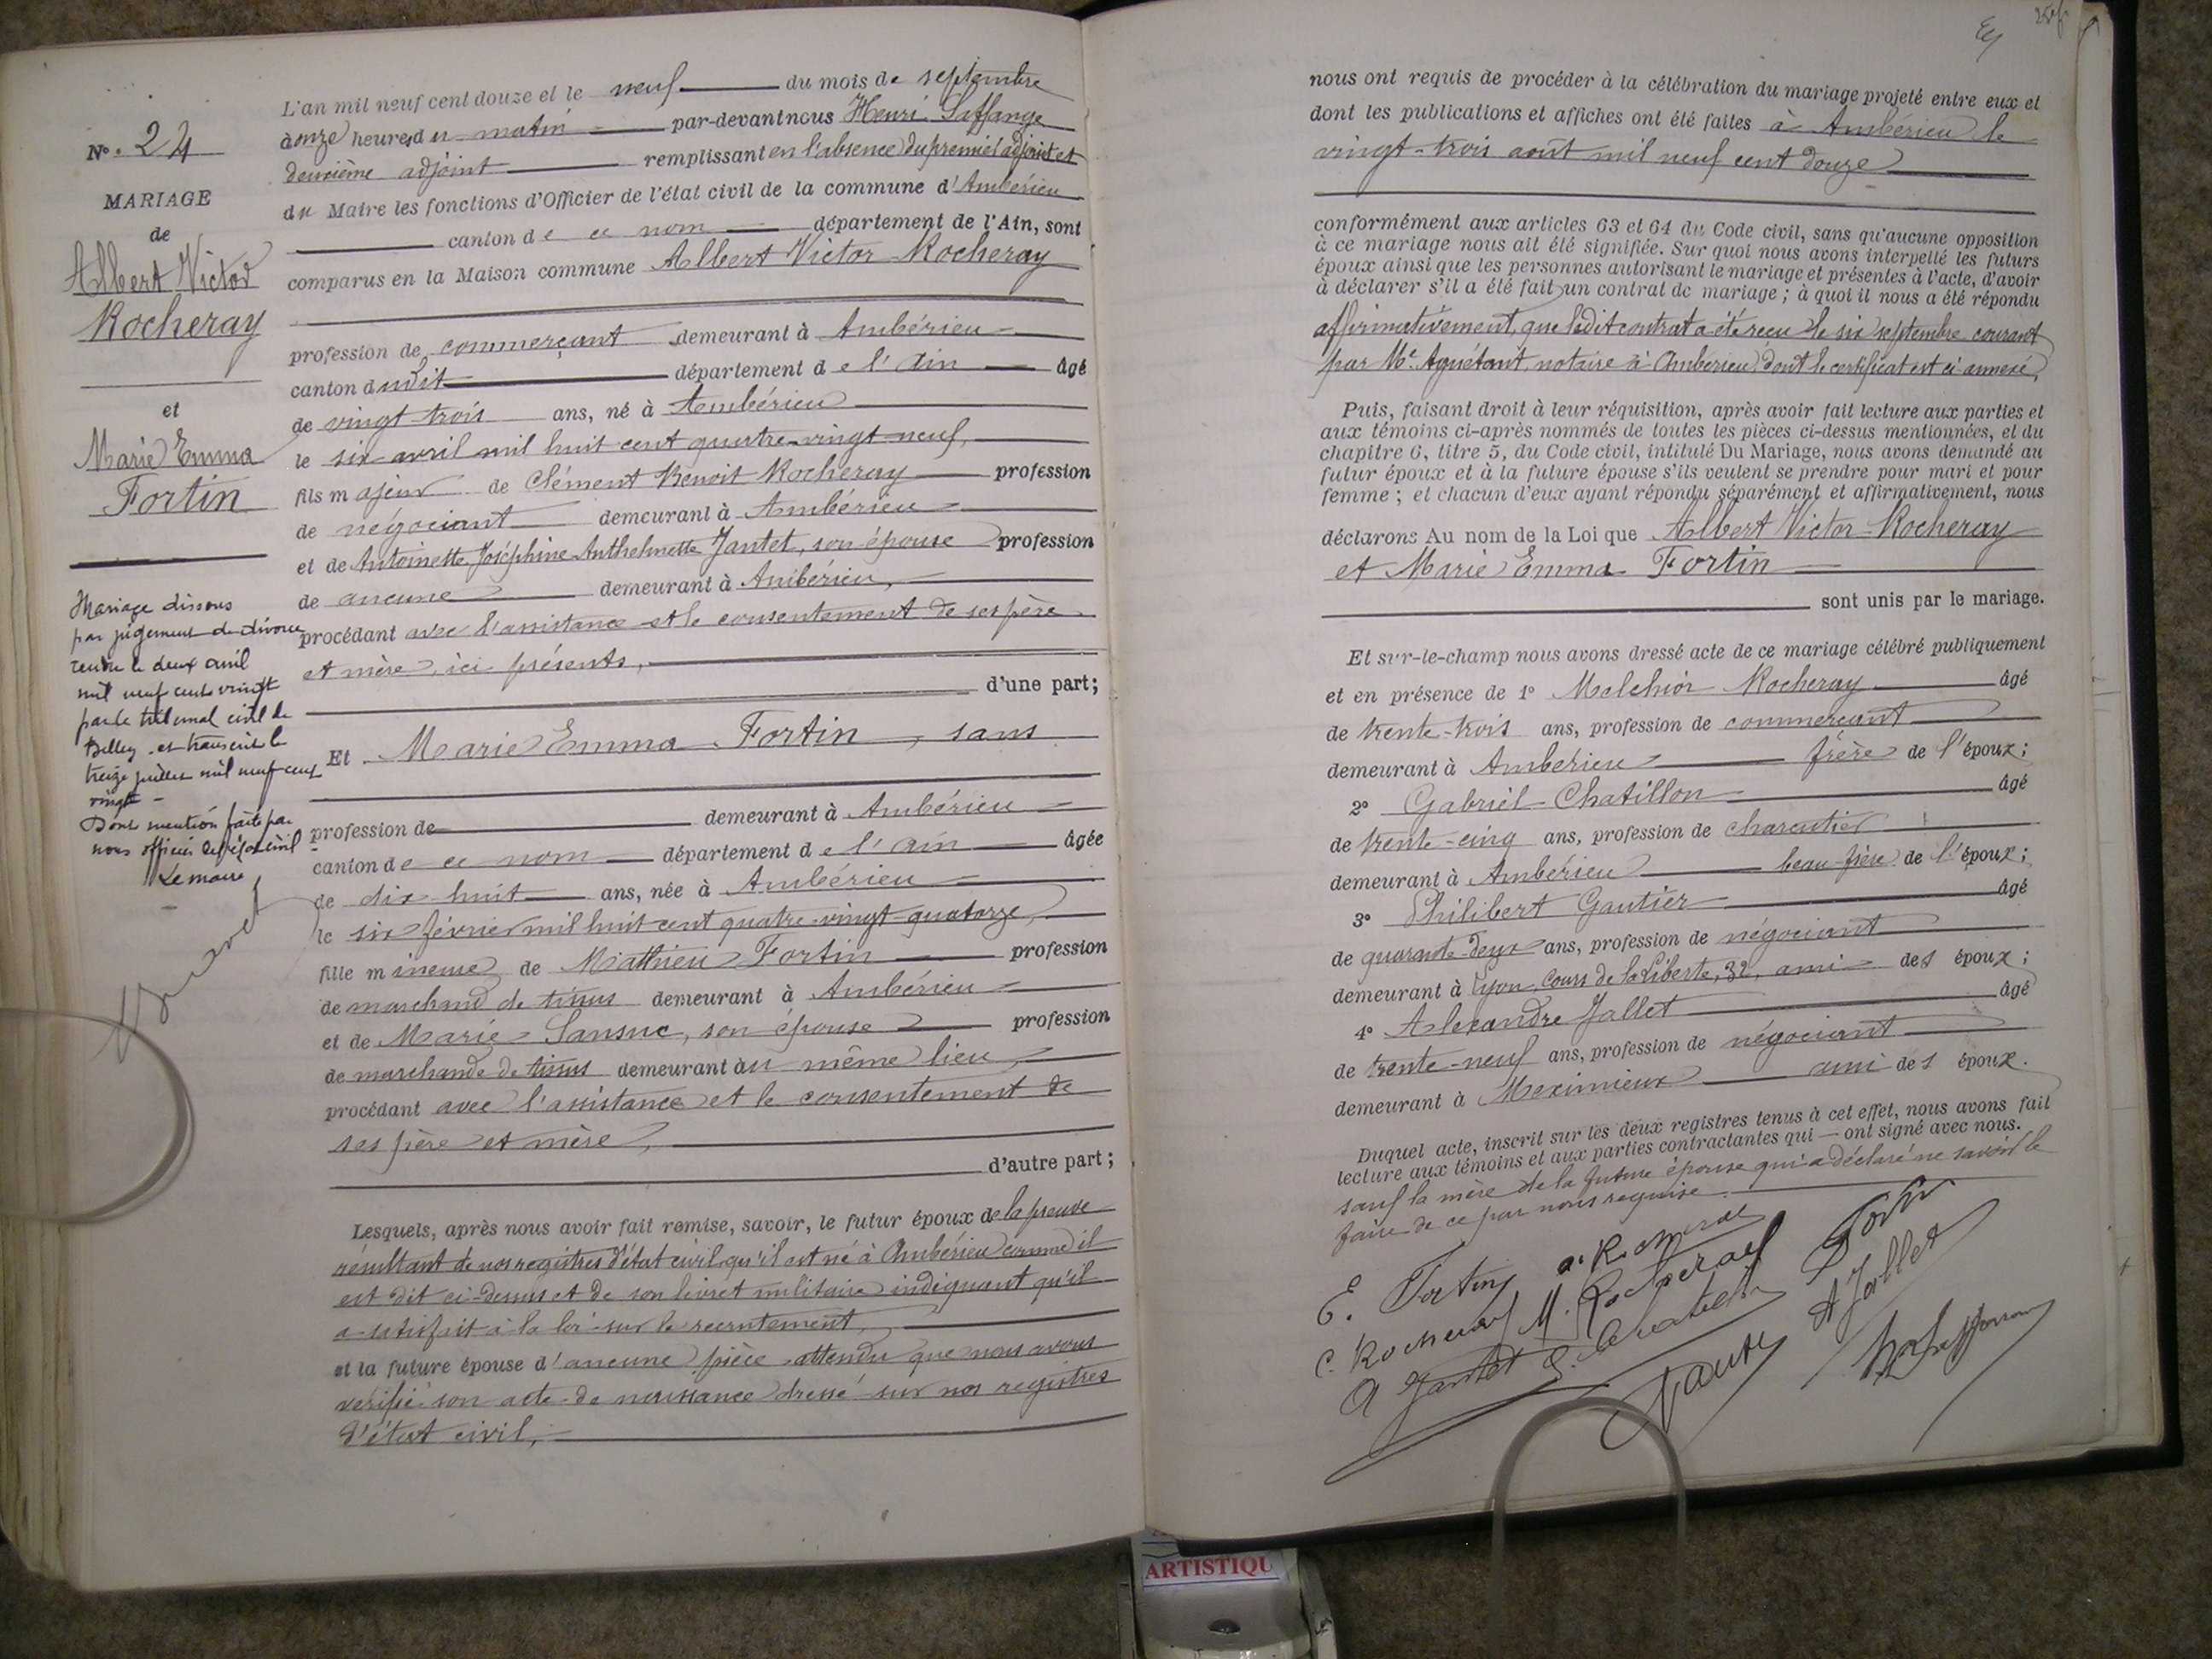 Nº. 24
MARIAGE
de
Albert Victor
Rocheray
et
Marie Emma
Fortin
Mariage dissous
par jugement de divorce
rendu le deux avril
mil neuf cent vingt
par le tribunal civil de
Belley et transcrit le
treize juillet mil neuf cent
vingt -
Dont mention faite par
nous officier de l'état civil
Le maire
L'an mil neuf cent douze et le neuf du mois de septembre
à onze heures du matin par-devant nous Henri Laffange
deuxième adjoint remplissant en l'absence du premier adjoint et
du Maire les fonctions d'Officier de l'état civil de la commune d'Ambérieu
canton de ce nom département de l'Ain, sont
comparus en la Maison commune Albert Victor Rocheray
profession de commerçant demeurant à Ambérieu
canton dudit département de l'Ain âgé
de vingt-trois ans, né à Ambérieu
le six avril mil huit cent quatre-vingt-neuf,
fils majeur de Clément Benoit Rocheray profession
de négociant demeurant à Ambérieu
et de Antoinette Joséphine Anthelmette Jantet, son épouse profession
de aucune demeurant à Ambérieu,
procédant avec l'assistance et le consentement de ses père
et mère, ici présents,
d'une part;
Et Marie Emma Fortin, sans
profession de demeurant à Ambérieu
canton de ce nom département de l'Ain âgée
de dix huit ans, née à Ambérieu
le six février mil huit cent quatre-vingt-quatorze,
fille mineure de Mathieu Fortin profession
de marchand de tissus demeurant à Ambérieu
et de Marie Sansuc, son épouse profession
de marchande de tissus demeurant au même lieu,
procédant avec l'assistance et le consentement de
ses père et mère,
d'autre part;
Lesquels, après nous avoir fait remise, savoir, le futur époux de la preuve
résultant de nos registres d'état civil qu'il est né à Ambérieu comme il
est dit ci-dessus et de son livret militaire indiquant qu'il
a satisfait à la loi sur le recrutement,
et la future épouse d'aucune pièce attendu que nous avons
vérifié son acte de naissance dressé sur nos registres
d'état civil,
nous ont requis de procéder à la célébration du mariage projeté entre eux et
dont les publications et affiches ont été faites à Ambérieu le
vingt-trois août mil neuf cent douze
conformément aux articles 63 et 64 du Code civil, sans qu'aucune opposition
à ce mariage nous ait été signifiée. Sur quoi nous avons interpellé les futurs
époux ainsi que les personnes autorisant le mariage et présentes à l'acte, d'avoir
à déclarer s'il a été fait un contrat de mariage; à quoi il nous a été répondu
affirmativement, que ledit contrat a été reçu le six septembre courant
par Me Aguétant, notaire à Ambérieu, dont le certificat est ci-annexé.
Puis, faisant droit à leur réquisition, après avoir fait lecture aux parties et
aux témoins ci-après nommés de toutes les pièces ci-dessus mentionnées, et du
chapitre 6, titre 5, du Code civil, intitulé Du Mariage, nous avons demandé au
futur époux et à la future épouse s'ils veulent se prendre pour mari et pour
femme; et chacun d'eux ayant répondu séparément et affirmativement, nous
déclarons Au nom de la Loi que Albert Victor Rocheray
et Marie Emma Fortin
sont unis par le mariage.
Et sur-le-champ nous avons dressé acte de ce mariage célébré publiquement
et en présence de 1º Melchior Rocheray âgé
de trente-trois ans, profession de commerçant
demeurant à Ambérieu frère de l'époux;
2º Gabriel Chatillon âgé
de trente-cinq ans, profession de charcutier
demeurant à Ambérieu beau-frère de l'époux;
3º Philibert Gautier âgé
de quarante-deux ans, profession de négociant
demeurant à Lyon, Cours de la Liberté, 32, ami des époux;
4º Alexandre Jallet âgé
de trente-neuf ans, profession de négociant
demeurant à Meximieux ami des époux.
Duquel acte, inscrit sur les deux registres tenus à cet effet, nous avons fait
lecture aux témoins et aux parties contractantes qui — ont signé avec nous.
sauf la mère de la future épouse qui a déclaré ne savoir le
faire de ce par nous requise.
E. Fortin
C. Rocheray M. Rocheray
A Jantet
A Jallet
ARTISTIQU